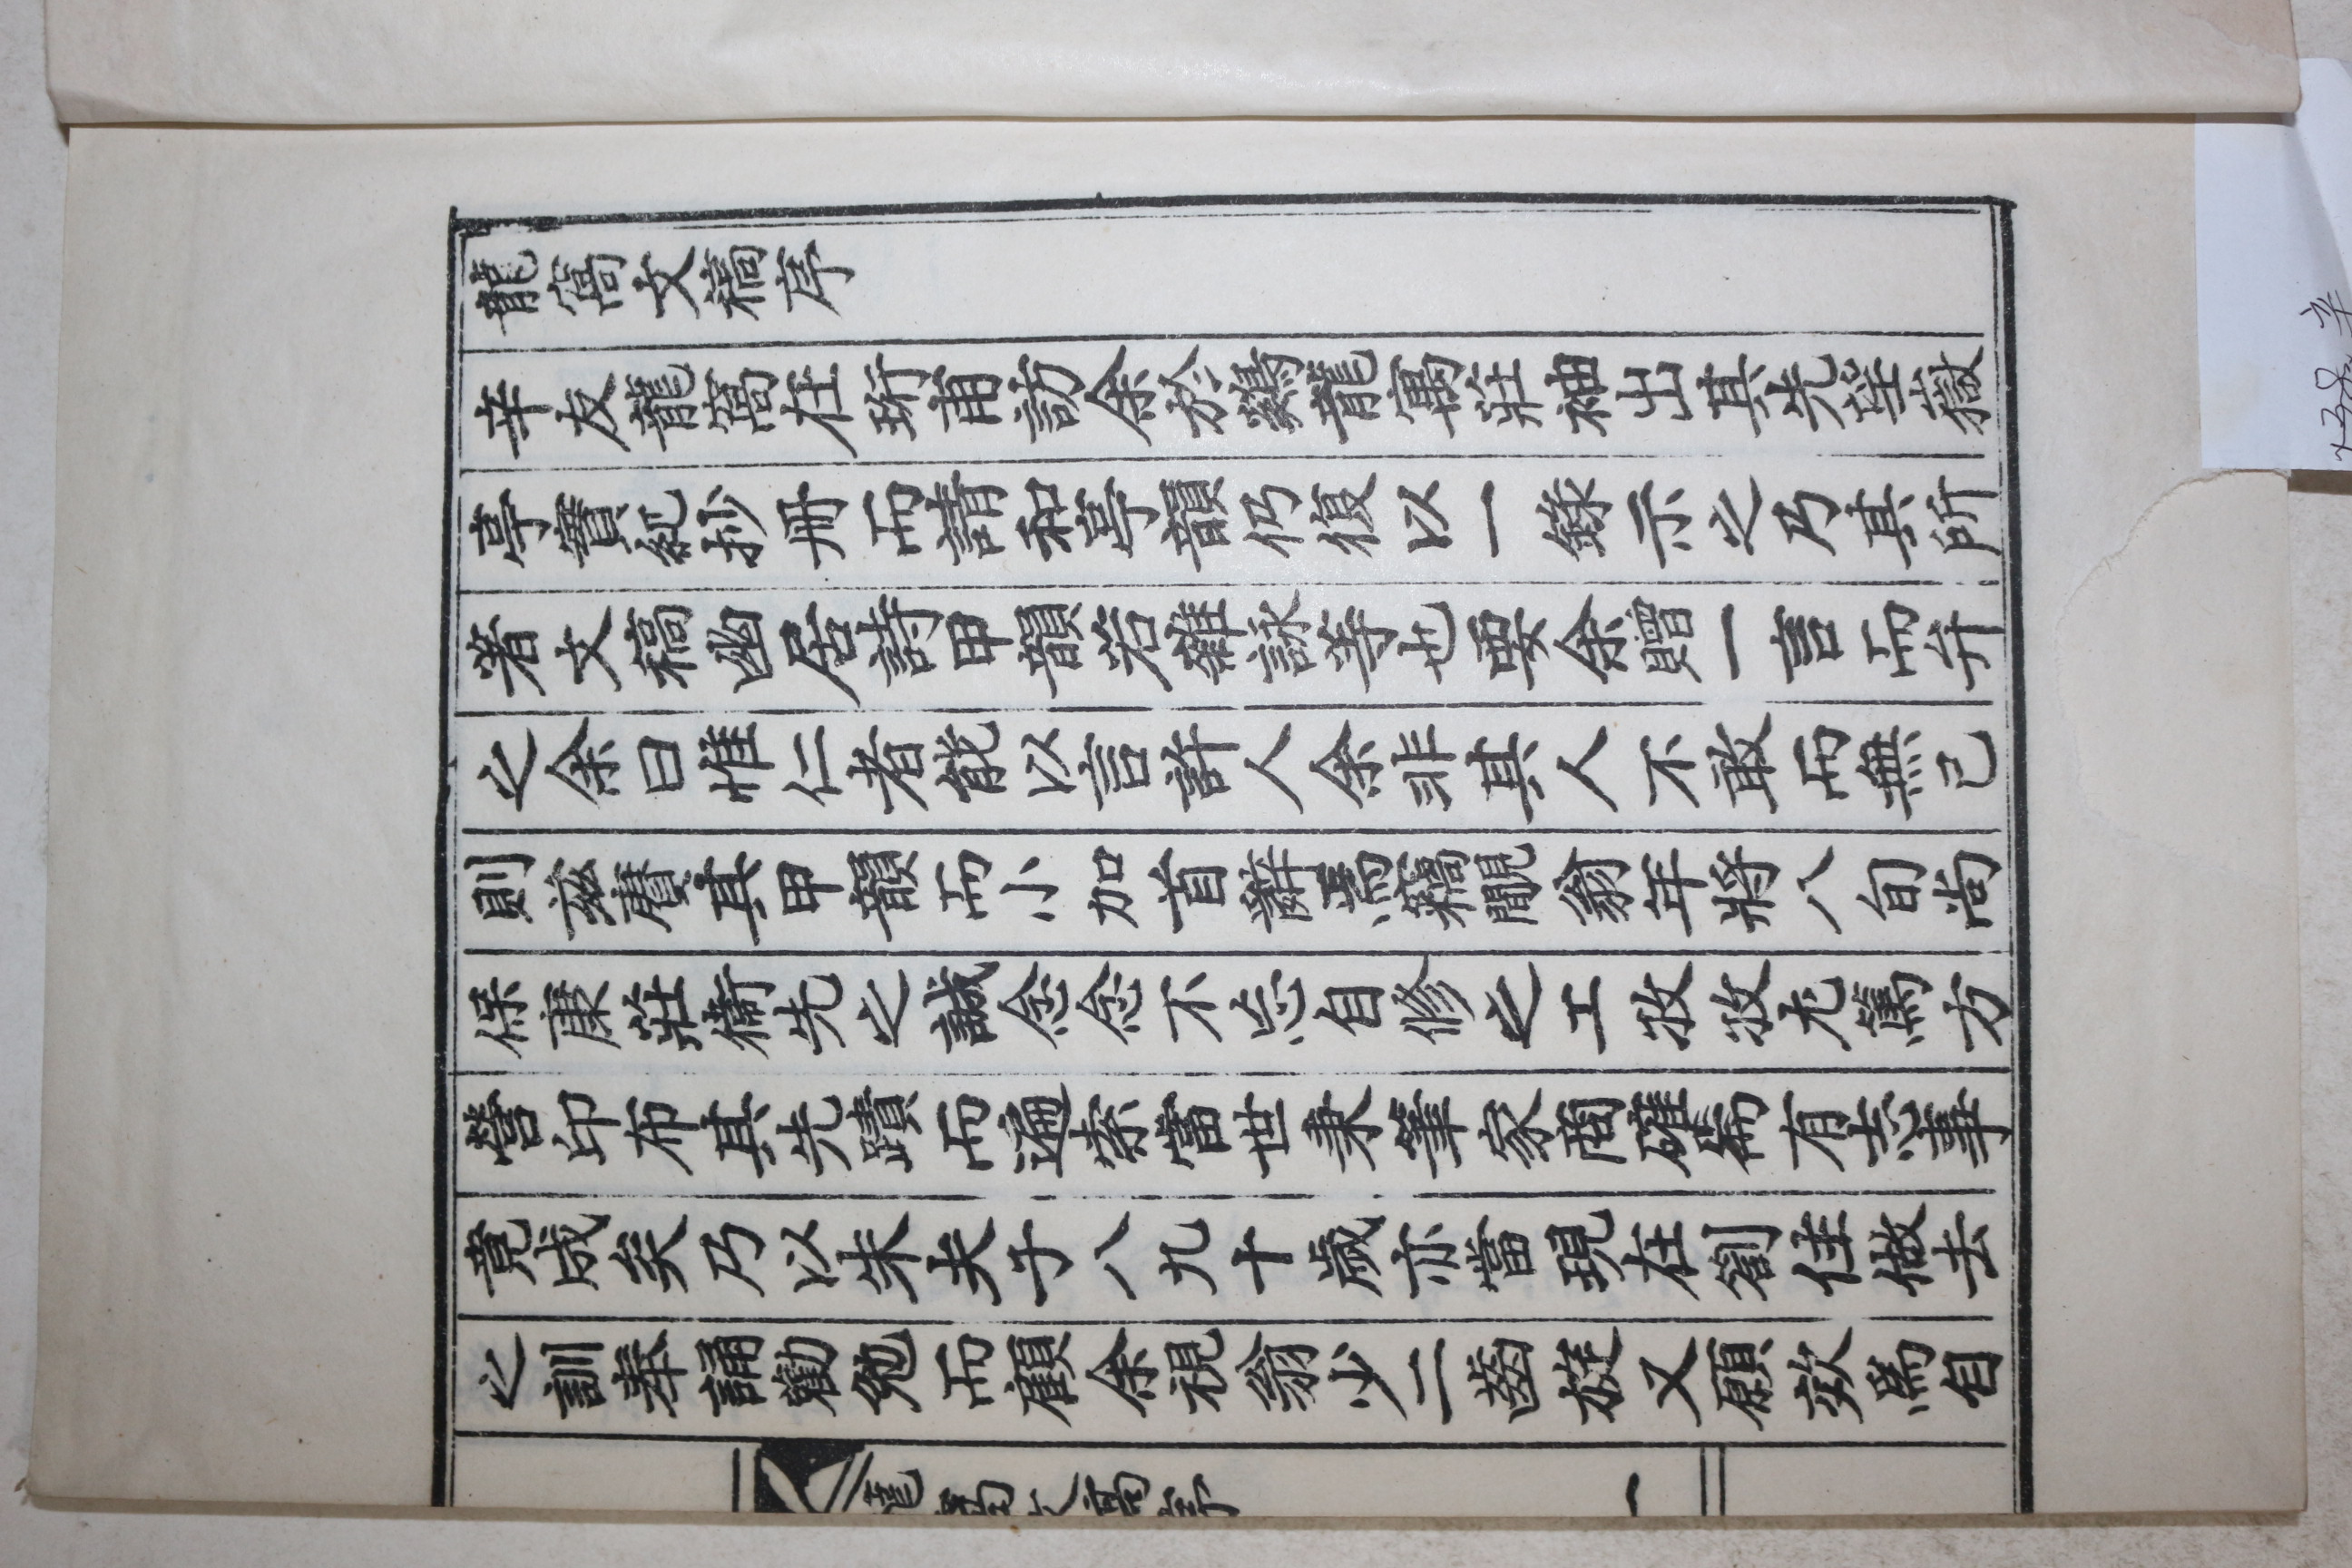 龍窩文稿序
辛友龍窩在珩甫訪余於鷄龍寓庄袖出其先
亭實紀抄册而請和亭韻仍復以一錄示之乃其所
著文稿幽居詩甲韻若雜詠等也要余贈一言而弁
之余曰惟仁者能以言許人余非其人不敢而無已
則玆賡其甲韻而小加首辭焉竊覸翁年將八旬尚
保康莊衛先之誠念念不忘自修之工孜孜尤篤方
營印布其先蹟而通索當世秉筆家商確有志事
竟成矣乃以朱夫子八九十歲亦當現在劄住做去
之訓奉誦勸勉而顧余視翁少二齒旋又願效焉自
龍窩文稿序 一